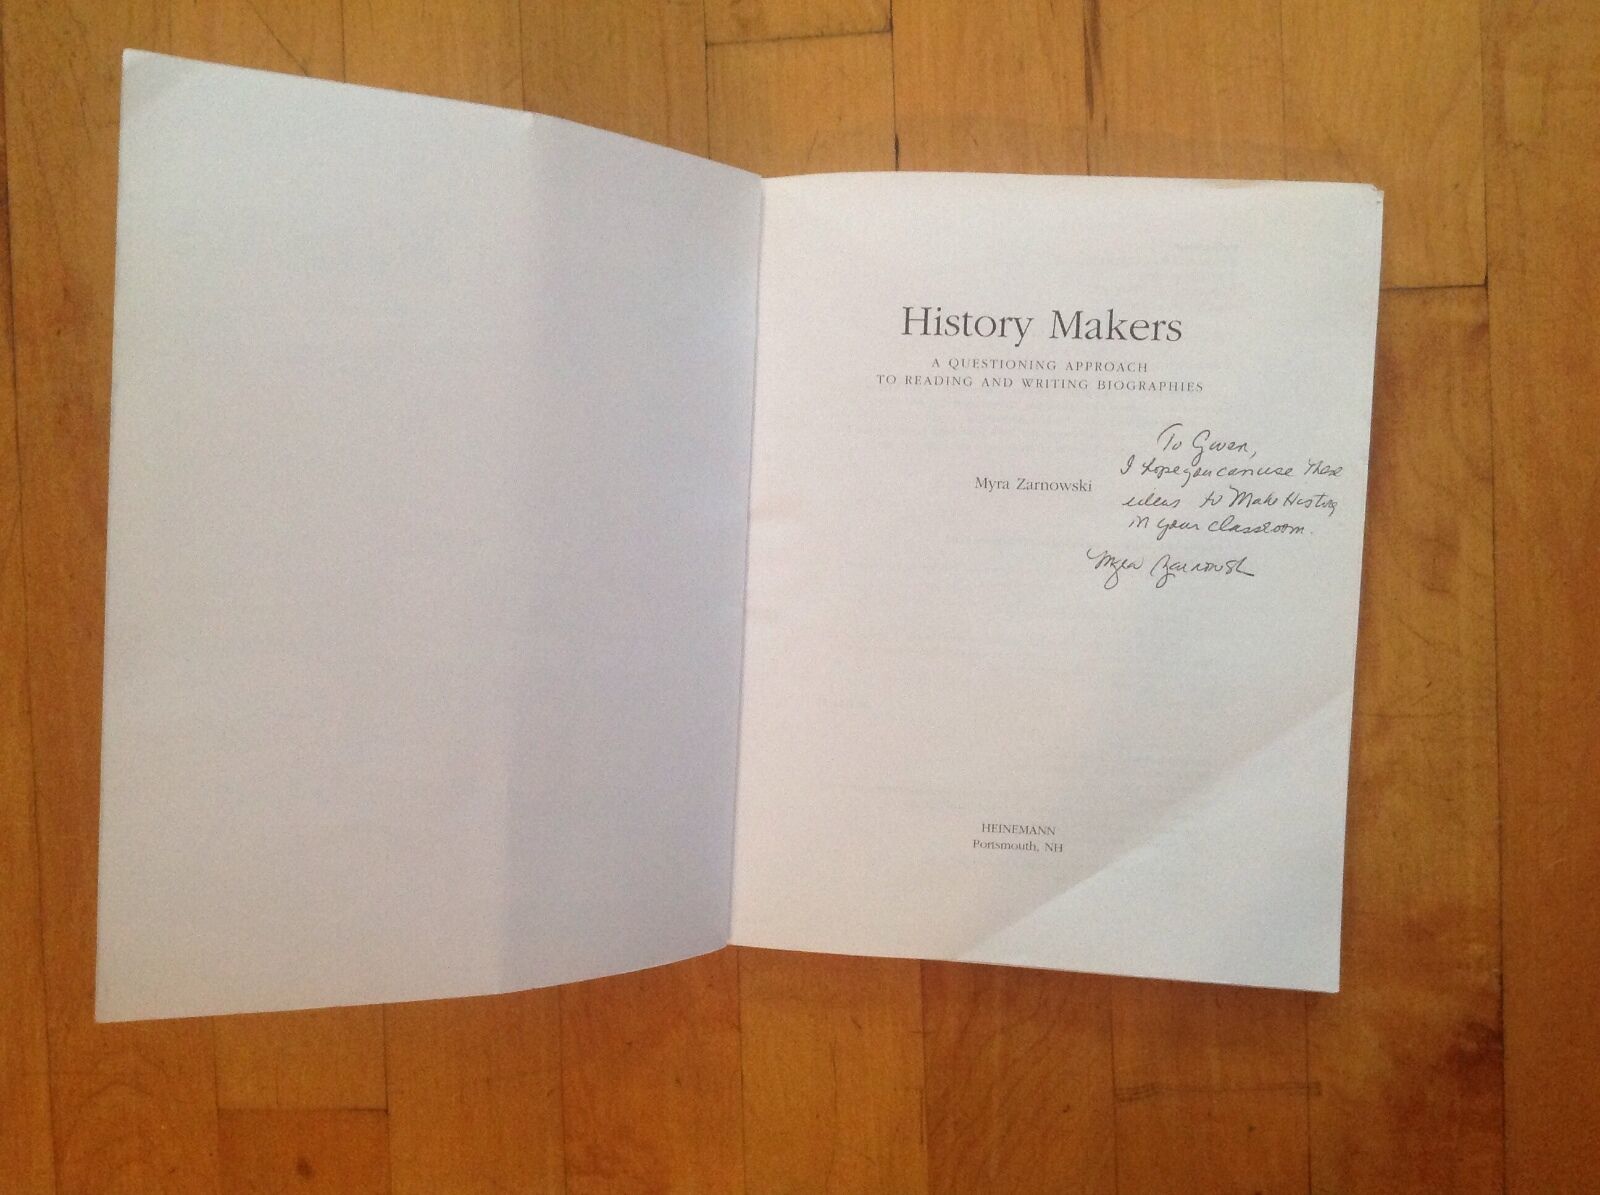 History Makers
A QUESTIONING APPROACH
TO READING AND WRITING BIOGRAPHIES
To Gwen,
I hope you can use these
ideas to Make History
in your classroom.
Myra Zarnowski
Myra Zarnowski
HEINEMANN
Portsmouth, NH